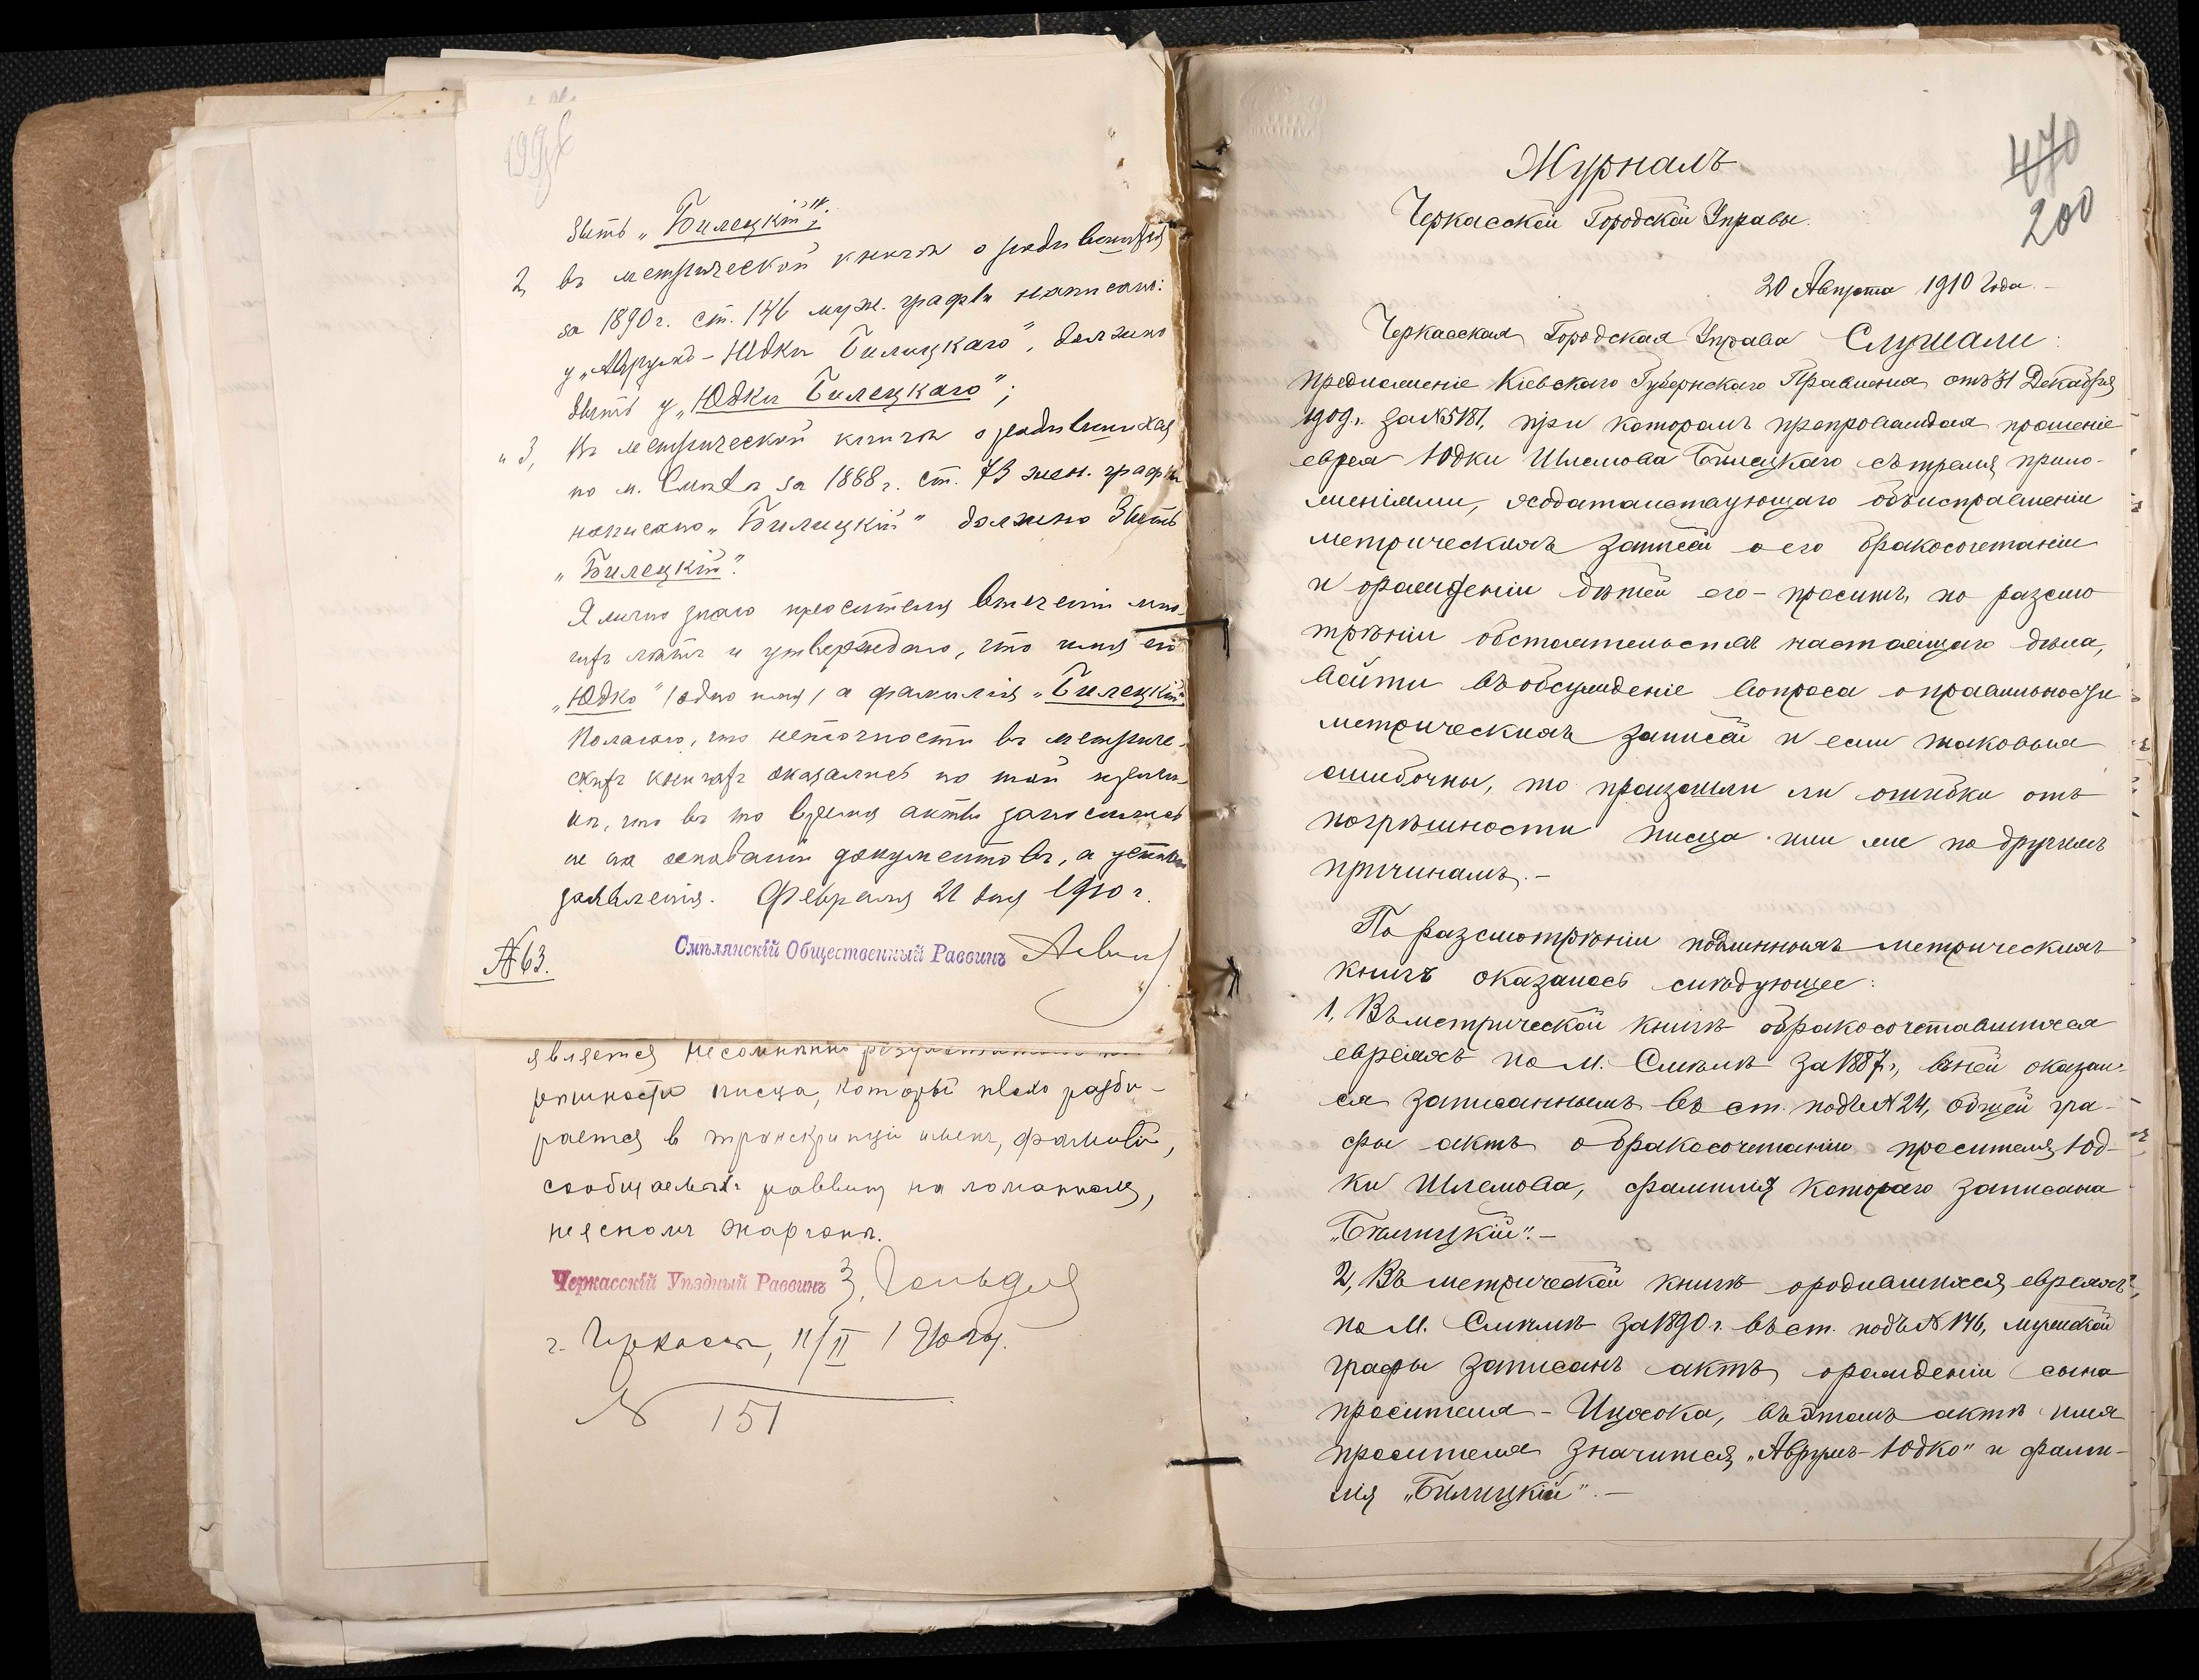 199об
быть „Билецкій";
2, въ метрической книгѣ о родившихся
за 1890 г. ст. 146 муж. графы написано:
у „Аврумъ-Юдки Билицкаго", должно
быть у „Юдки Билецкаго";
„ 3, Въ метрической книгѣ о родившихся
по м. Смѣлѣ за 1888 г. ст. 73 жен. графы
написано „Билицкій" должно быть
„Билецкій".
Я лично знаю просителя втеченіи мно-
гихъ лѣтъ и утверждаю, что имя его
„Юдко" (одно имя) а фамилія „Билецкій".
Полагаю, что неточности въ метриче-
скихъ книгахъ оказались по той причи-
нѣ, что въ то время акты заносились
не на основаніи документовъ, а устнаго
заявленія. Февраля 21 дня 1910 г.
№ 63. Смѣлянскій Общественный Раввинъ
является несомнѣнно результатомъ
рѣшности писца, который плохо разби-
рается в транскрипціи именъ, фамилій,
сообщаемыхъ раввину на ломанномъ,
неясномъ жаргонѣ.
Черкасскій Уѣздный Раввинъ
г. Черкассы, 11/II 1910 г.
№ 151
470
200
Журналъ
Черкасской Городской Управы.
20 Августа 1910 года.-
Черкасская Городская Управа Слушали:
предложеніе Кіевскаго Губернскаго Правленія отъ 31 Декабря
1909 г. за № 5181, при которомъ препровождая прошеніе
еврея Юдки Шлемова Билецкаго съ тремя прило-
женіями, ходатайствующаго объ исправленіи
метрическихъ записей о его бракосочетаніи
и о рожденіи дѣтей его - проситъ, по разсмо
трѣніи обстоятельствъ настоящаго дѣла,
войти въ обсужденіе вопроса о правильности
метрическихъ записей и если таковыя
ошибочны, то произошли ли ошибки отъ
погрѣшности писца или же по другимъ
причинамъ.-
По разсмотрѣніи подлинныхъ метрическихъ
книгъ оказалось слѣдующее:
1, Въ метрической книгѣ о бракосочетавшихся
евреяхъ по м. Смѣлѣ за 1887 г., въ ней оказал-
ся записаннымъ въ ст. подъ № 24, общей гра-
фы актъ о бракосочетаніи просителя Юд-
ки Шлемова, фамилія котораго записана
„Бѣлицкій".-
2, Въ метрической книгѣ о родившихся евреяхъ,
по м. Смѣлѣ за 1890 г. въ ст. подъ № 146, мужской
графы записанъ актъ о рожденіи сына
просителя - Ицхока, въ этомъ актѣ имя
просителя значится „Аврумъ-Юдко" и фами-
лія „Билицкій".-